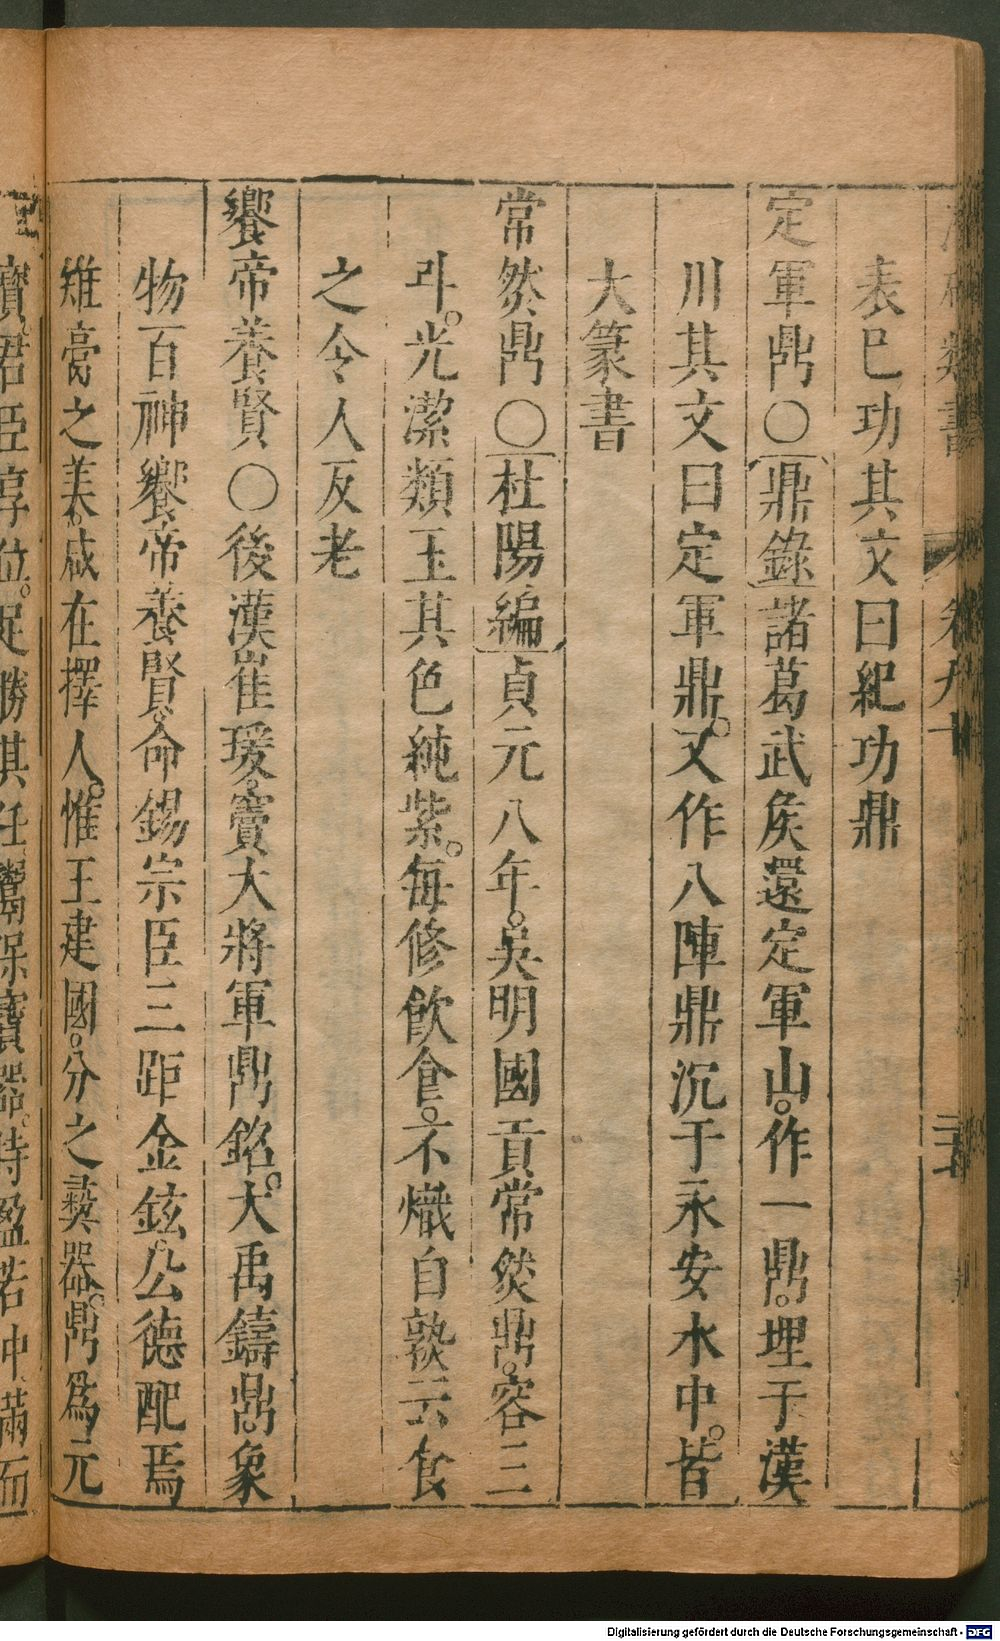 類書 卷九十
表巳功其文曰紀功鼎
定軍鼎〇鼎錄諸葛武矦還定軍山。作一鼎。埋于漢
川其文曰定軍鼎。又作八陣鼎沉于永安水中。皆
大篆書
常然鼎〇杜陽編貞元八年。吳明國貢常然鼎。容三
斗。光潔類玉其色純紫。每修飲食。不熾自孰云食
之令人反老
饗帝養賢〇後漢崔瑗。竇大將軍鼎銘。大禹鑄鼎象
物百神饗帝養賢。命錫宗臣三距金鉉。公德配焉
雉膏之美。咸在擇人。惟王建國。分之彝器。鼎爲元
寶。君臣享位。足勝其任保寶器。持盈若冲滿而
Digitalisierung gefördert durch die Deutsche Forschungsgemeinschaft - DFG